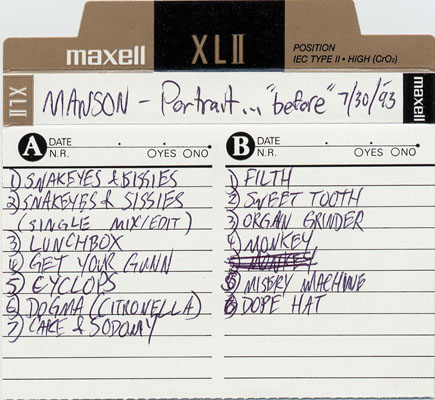 maxell
XLII
POSITION
IEC TYPE II • HIGH (CrO₂)
XLII
MANSON - Portrait... "before" 7/30/93
maxell
A DATE . .
N.R. OYES ONO
1) SNAKEYES & SISSIES
2) SNAKEYES & SISSIES
(SINGLE MIX/EDIT)
3) LUNCHBOX
4) GET YOUR GUNN
5) CYCLOPS
6) DOGMA (CITRONELLA)
7) CAKE & SODOMY
B DATE . .
N.R. OYES ONO
1) FILTH
2) SWEET TOOTH
3) ORGAN GRINDER
4) MONKEY
MONKEY
5) MISERY MACHINE
6) DOPE HAT